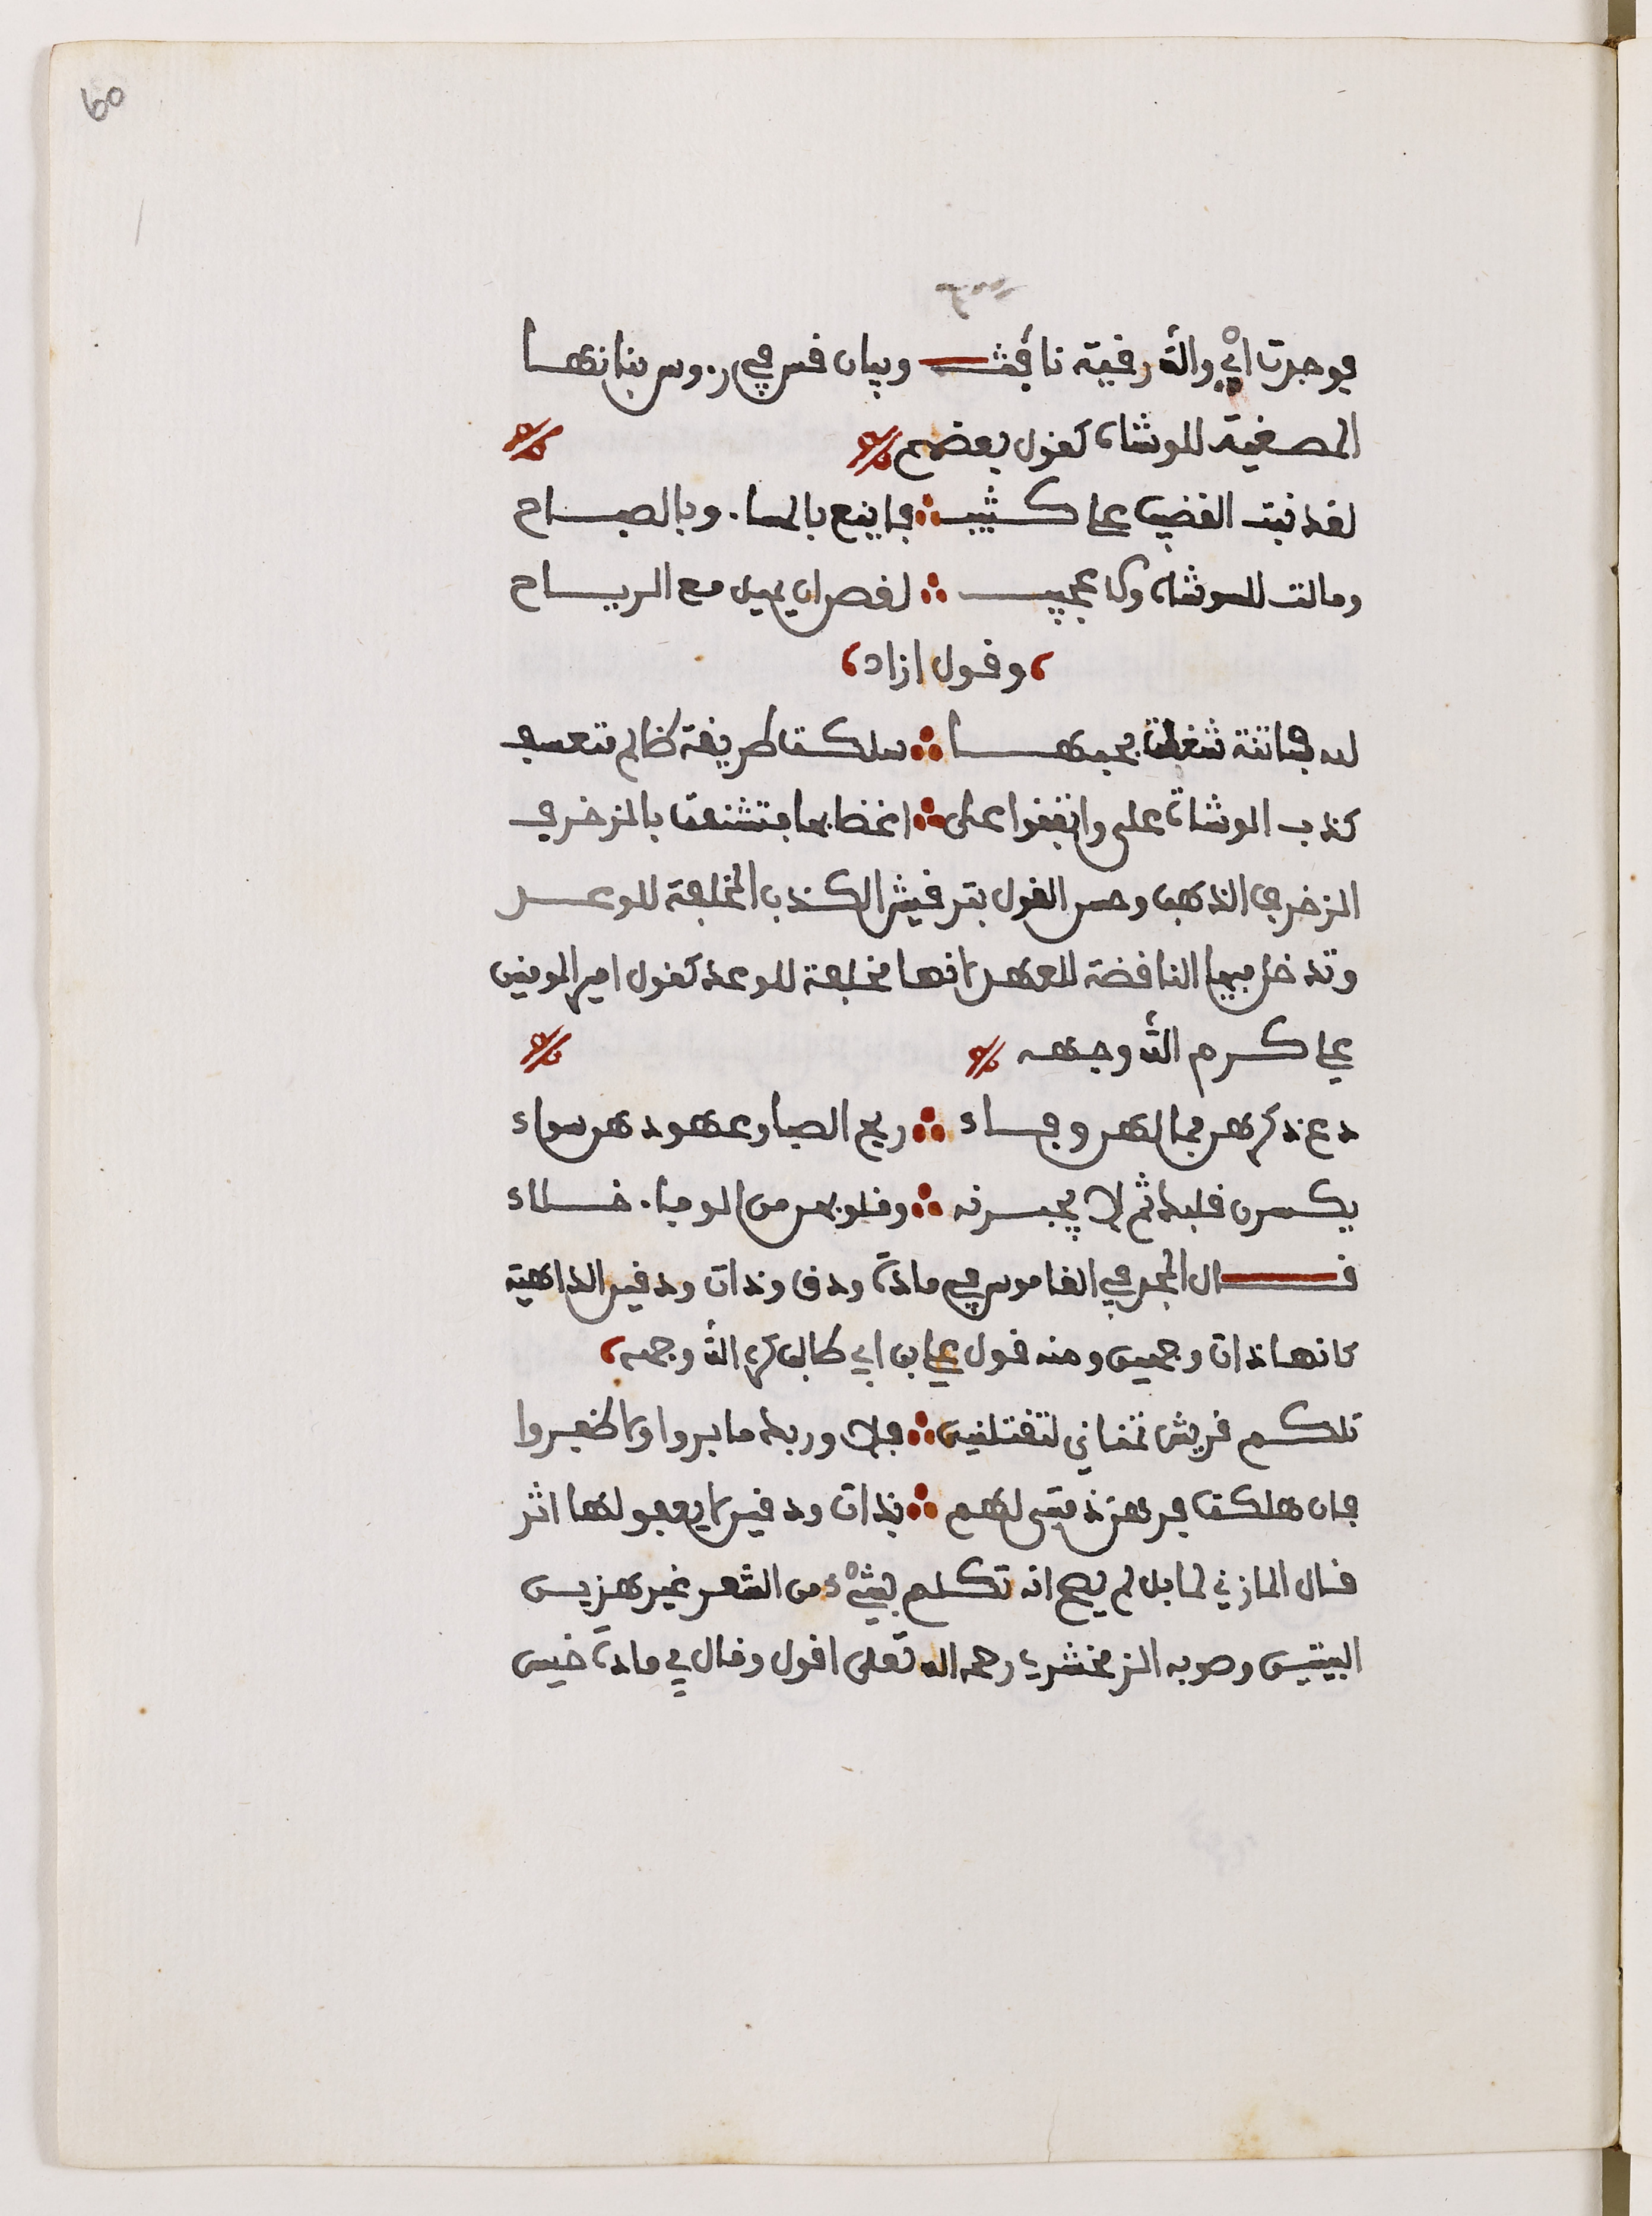 60
فوجدت اي والله رقية نافثـــة وبيان قس في رءوس بنانها
المصغية للوشاة كقول بعضهم
لقد نبت القضيب على كثيب ∴ فاينع بالمساء وبالصباح
ومالت للوشاة ولا عجيب ∴ لغصن ان يميل مع الرياح
وقول ازاد
لله فاتنة شغلت بحبها ∴ سلكت طريقة ظالم متعسف
كذب الوشاة علي واتفقوا على ∴ اغضابها فتشنفت بالزخرف
الزخرف الذهب وحسن القول بترقيش الكذب المخلفة للوعد
وتدخل فيها الناقضة للعهد لانها مخلفة للوعد كقول امير المومنين
علي كرم الله وجهه
دع ذكرهن فما لهن وفاء ∴ ريح الصبا وعهودهن سواء
يكسرن قلبك ثم لا يجبرنه ∴ وقلوبهن من الوفاء خلاء
قـــال المجد في القاموس في مادة ودق وذات ودقين الداهية
كانها ذات وجهين ومنه قول علي بن ابي طالب كرم الله وجهه
تلكم قريش تمناني لتقتلني ∴ فلا وربك ما بروا ولا ظفروا
فان هلكت فرهن ذمتي لهم ∴ بذات ودقين لا يعفو لها اثر
قال المازني لما بل لم يصح انه تكلم بشيء من الشعر غير هذين
البيتين وصوبه الزمخشري رحمه الله تعلى اقول وقال في مادة خيس